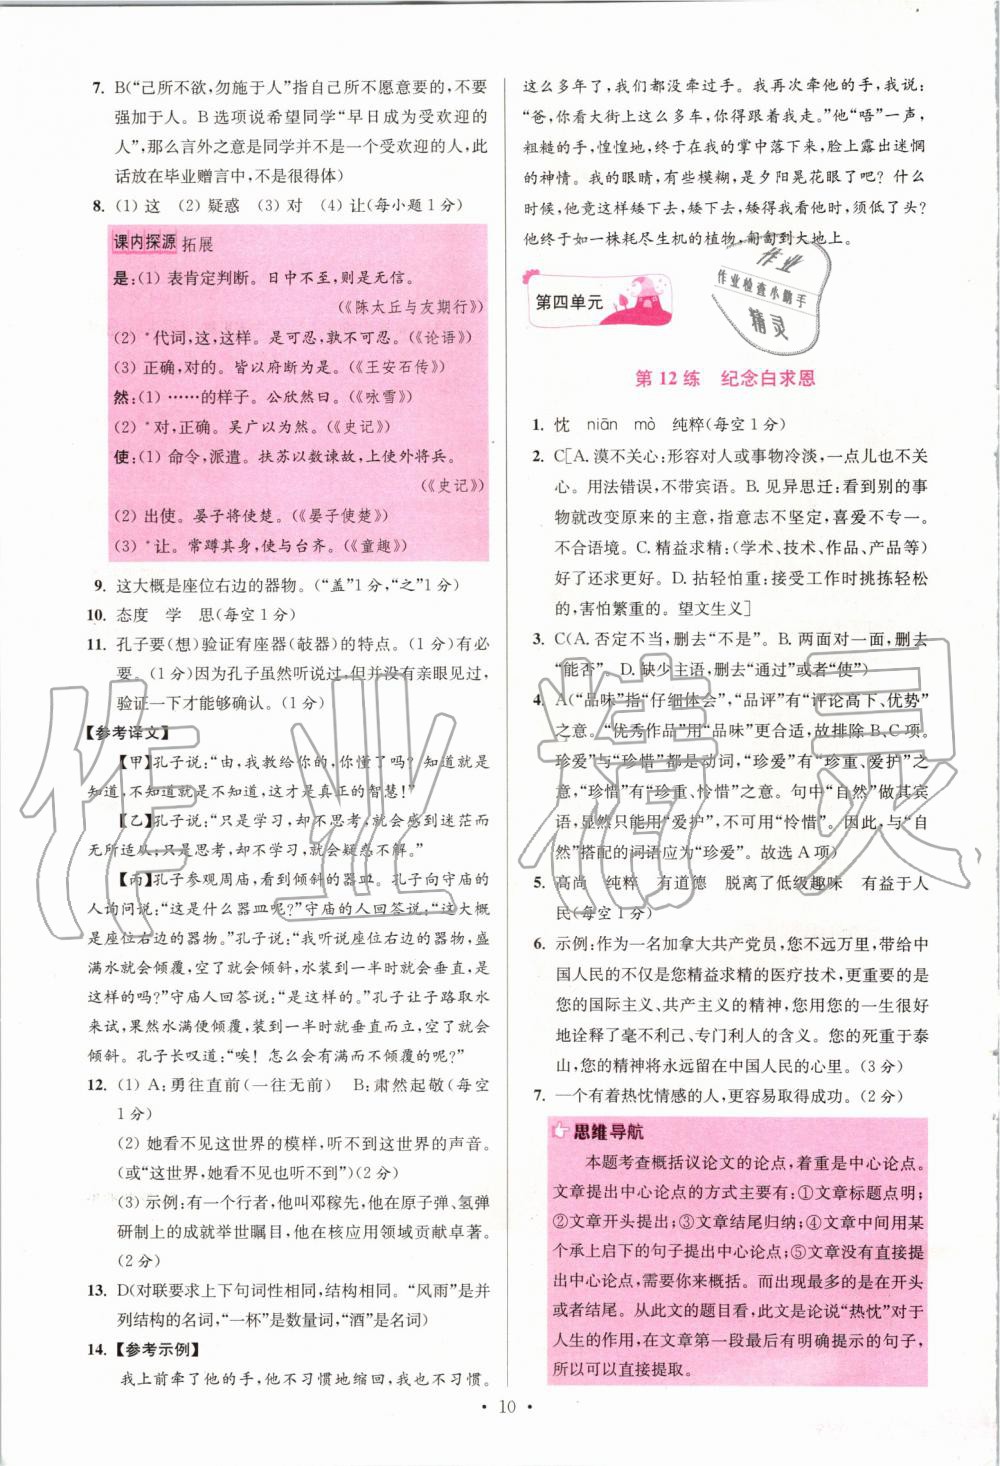 7. B(“己所不欲,勿施于人”指自己所不愿意要的,不要
强加于人。B选项说希望同学“早日成为受欢迎的
人”,那么言外之意是同学并不是一个受欢迎的人,此
话放在毕业赠言中,不是很得体)
8. (1) 这 (2) 疑惑 (3) 对 (4) 让(每小题1分)
课内探源 拓展
是:(1) 表肯定判断。日中不至,则是无信。
(《陈太丘与友期行》)
(2) *代词,这,这样。是可忍,孰不可忍。(《论语》)
(3) 正确,对的。皆以府断为是。(《王安石传》)
然:(1) ……的样子。公欣然曰。(《咏雪》)
(2) *对,正确。吴广以为然。(《史记》)
使:(1) 命令,派遣。扶苏以数谏故,上使外将兵。
(《史记》)
(2) 出使。晏子将使楚。(《晏子使楚》)
(3) *让。常蹲其身,使与台齐。(《童趣》)
9. 这大概是座位右边的器物。(“盖”1分,“之”1分)
10. 态度 学 思(每空1分)
11. 孔子要(想)验证宥座器(欹器)的特点。(1分)有必
要。(1分)因为孔子虽然听说过,但并没有亲眼见过,
验证一下才能够确认。(1分)
【参考译文】
【甲】孔子说:“由,我教给你的,你懂了吗?知道就是
知道,不知道就是不知道,这才是真正的智慧!”
【乙】孔子说:“只是学习,却不思考,就会感到迷茫而
无所适从;只是思考,却不学习,就会疑惑不解。”
【丙】孔子参观周庙,看到倾斜的器皿。孔子向守庙的
人询问说:“这是什么器皿呢?”守庙的人回答说:“这大概
是座位右边的器物。”孔子说:“我听说座位右边的器物,盛
满水就会倾覆,空了就会倾斜,水装到一半时就会垂直,是
这样的吗?”守庙人回答说:“是这样的。”孔子让子路取水
来试,果然水满便倾覆,装到一半时就垂直而立,空了就会
倾斜。孔子长叹道:“唉!怎么会有满而不倾覆的呢?”
12. (1) A:勇往直前(一往无前) B:肃然起敬(每空
1分)
(2) 她看不见这世界的模样,听不到这世界的声音。
(或“这世界,她看不见也听不到”)(2分)
(3) 示例:有一个行者,他叫邓稼先,他在原子弹、氢弹
研制上的成就举世瞩目,他在核应用领域贡献卓著。
(2分)
13. D(对联要求上下句词性相同,结构相同。“风雨”是并
列结构的名词,“一杯”是数量词,“酒”是名词)
14. 【参考示例】
我上前牵了他的手,他不习惯地缩回,我也不习惯。
这么多年了,我们都没牵过手。我再次牵他的手,我说:
“爸,你看大街上这么多车,你得跟着我走。”他“唔”一声,
粗糙的手,惶惶地,终于在我的掌中落下来,脸上露出迷惘
的神情。我的眼睛,有些模糊,是夕阳晃花眼了吧?什么
时候,他竟这样矮下去,矮下去,矮得我看他时,须低了头?
他终于如一株耗尽生机的植物,匍匐到大地上。
第四单元
作业
作业检查小助手
精灵
第12练 纪念白求恩
1. 忱 niān mò 纯粹(每空1分)
2. C[A. 漠不关心:形容对人或事物冷淡,一点儿也不关
心。用法错误,不带宾语。B. 见异思迁:看到别的事
物就改变原来的主意,指意志不坚定,喜爱不专一。
不合语境。C. 精益求精:(学术、技术、作品、产品等)
好了还求更好。D. 拈轻怕重:接受工作时挑拣轻松
的,害怕繁重的。望文生义]
3. C(A. 否定不当,删去“不是”。B. 两面对一面,删去
“能否”。D. 缺少主语,删去“通过”或者“使”)
4. A(“品味”指“仔细体会”,“品评”有“评论高下、优势”
之意。“优秀作品”用“品味”更合适,故排除B、C项。
珍爱”与“珍惜”都是动词,“珍爱”有“珍重、爱护”之
意,“珍惜”有“珍重、怜惜”之意。句中“自然”做其宾
语,显然只能用“爱护”,不可用“怜惜”。因此,与“自
然”搭配的词语应为“珍爱”。故选A项)
5. 高尚 纯粹 有道德 脱离了低级趣味 有益于人
民(每空1分)
6. 示例:作为一名加拿大共产党员,您不远万里,带给中
国人民的不仅是您精益求精的医疗技术,更重要的是
您的国际主义、共产主义的精神,您用您的一生很好
地诠释了毫不利己、专门利人的含义。您的死重于泰
山,您的精神将永远留在中国人民的心里。(3分)
7. 一个有着热忱情感的人,更容易取得成功。(2分)
思维导航
本题考查概括议论文的论点,着重是中心论点。
文章提出中心论点的方式主要有:①文章标题点明;
②文章开头提出;③文章结尾归纳;④文章中间用某
个承上启下的句子提出中心论点;⑤文章没有直接提
中心论点,需要你来提炼。而出现最多的是在开头
或者结尾。从此文的题目看,此文是论说“热忱”对于
人生的作用,在文章第一段最后有明确提示的句子,
所以可以直接提取。
• 10 •
作业精灵